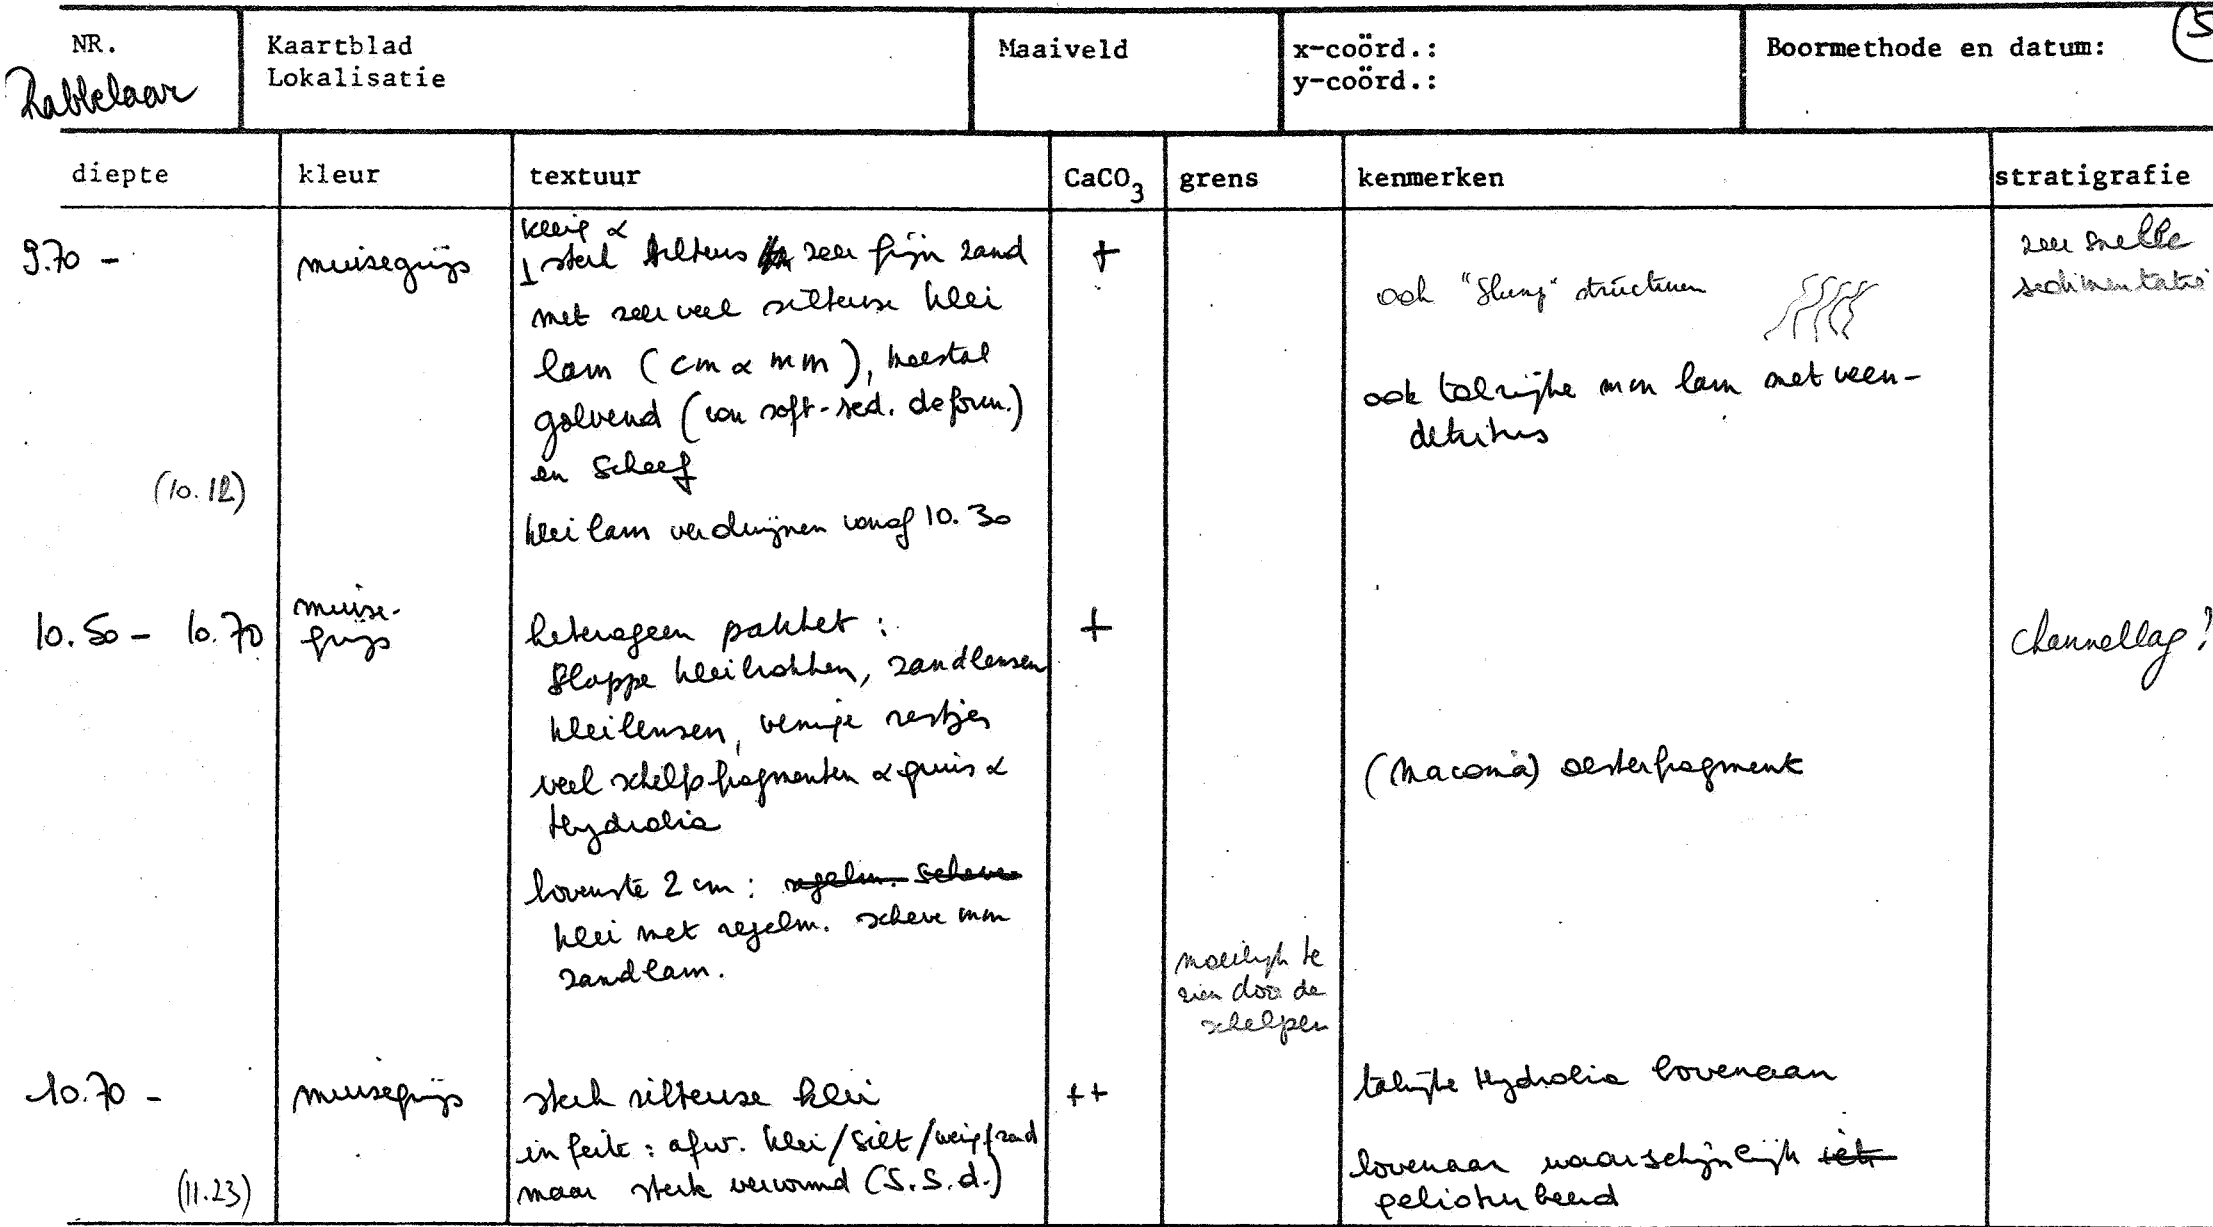 NR.
Rabbelaar
Kaartblad
Lokalisatie
Maaiveld
x-coörd.:
y-coörd.:
Boormethode en datum:
5
diepte
kleur
textuur
CaCO3
grens
kenmerken
stratigrafie
9.70 -
(10.12)
muisegrijs
kleiig &
sterk silteus zeer fijn zand
met zeer veel silteuse klei
lam (cm & mm), meestal
golvend (van soft-sed. deform.)
en scheef
klei lam verdwijnen vanaf 10.30
+
ook "slump" structuren
ook talrijke mm lam met veen-
detritus
zeer snelle
sedimentatie
10.50 - 10.70
muise-
grijs
heterogeen pakket :
slappe kleibrokken, zandlensen
kleilensen, venige restjes
veel schelpfragmenten & gruis &
Hydrobia
bovenste 2 cm : regelm. scheve
klei met regelm. scheve mm
zandlam.
+
moeilijk te
zien door de
schelpen
(Macoma) oesterfragment
channellag?
10.70 -
(11.23)
muisegrijs
sterk silteuse klei
in feite : afw. klei/silt/ zand
maar sterk vervormd (S.S.d.)
++
talrijke Hydrobia bovenaan
bovenaan waarschijnlijk
gebioturbeerd